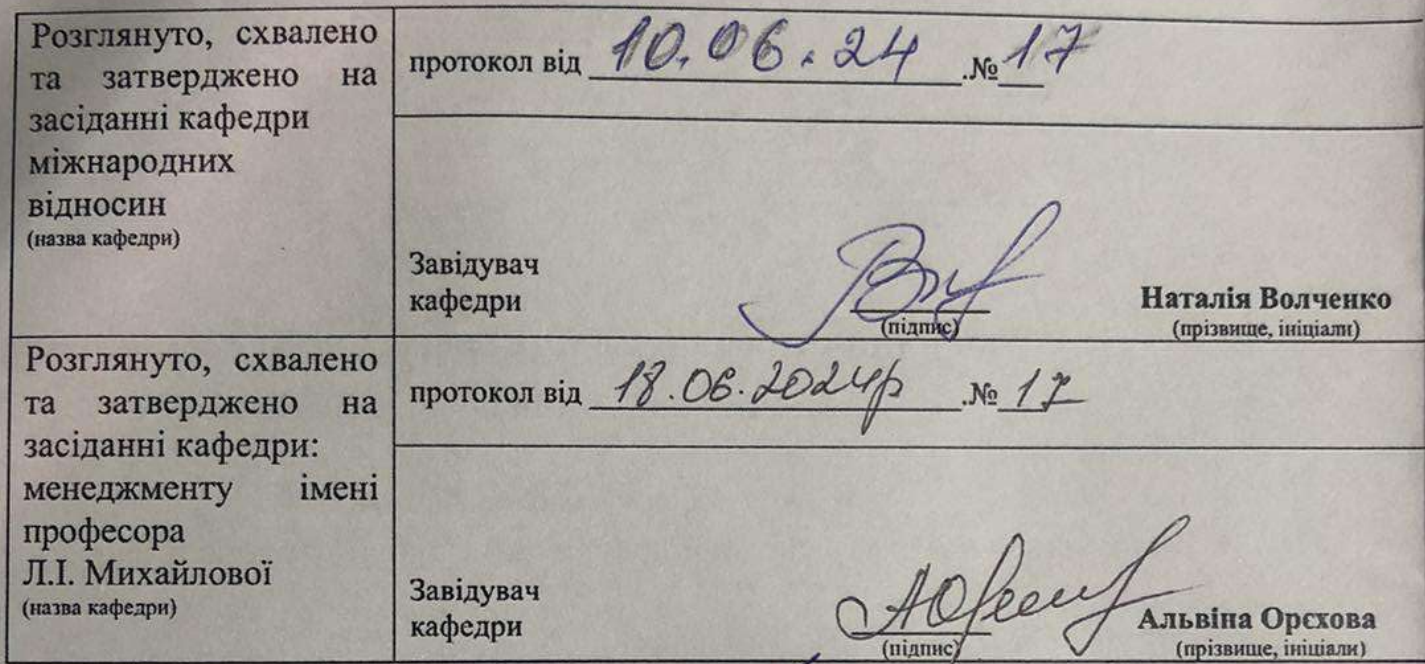 Розглянуто, схвалено
та затверджено на
засіданні кафедри
міжнародних
відносин
(назва кафедри)
протокол від 10.06.24 .№ 17
Завідувач
кафедри
(підпис)
Наталія Волченко
(прізвище, ініціали)
Розглянуто, схвалено
та затверджено на
засіданні кафедри:
менеджменту імені
професора
Л.І. Михайлової
(назва кафедри)
протокол від 18.06.2024р .№ 17
Завідувач
кафедри
(підпис)
Альвіна Орєхова
(прізвище, ініціали)